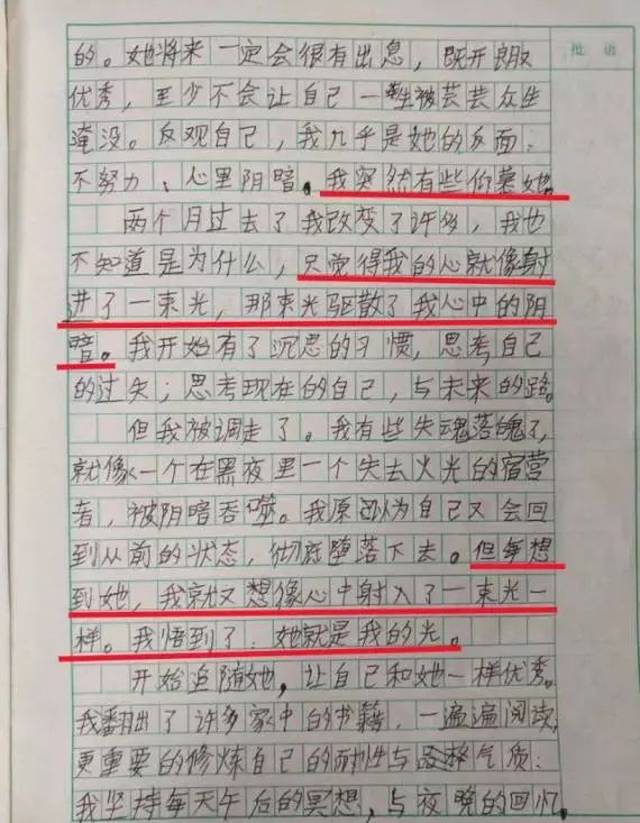 批 语
的。她将来一定会很有出息，既开朗又
优秀，至少不会让自己一生被芸芸众生
淹没。反观自己，我几乎是她的反面：
不努力、心里阴暗。我突然有些仰慕她。
两个月过去了我改变了许多，我也
不知道是为什么，只觉得我的心就像射
进了一束光，那束光驱散了我心中的阴
暗。我开始有了沉思的习惯，思考自己
的过失；思考现在的自己，与未来的路。
但我被调走了。我有些失魂落魄了，
就像一个在黑夜里一个失去火光的宿营
者，被阴暗吞噬。我原以为自己又会回
到从前的状态，彻底堕落下去。但每想
到她，我就又想像心中射入了一束光一
样。我悟到了：她就是我的光。
开始追随她，让自己和她一样优秀。
我翻出了许多家中的书籍，一遍遍阅读，
更重要的修炼自己的耐性与气质：
我坚持每天午后的冥想，与夜晚的回忆。